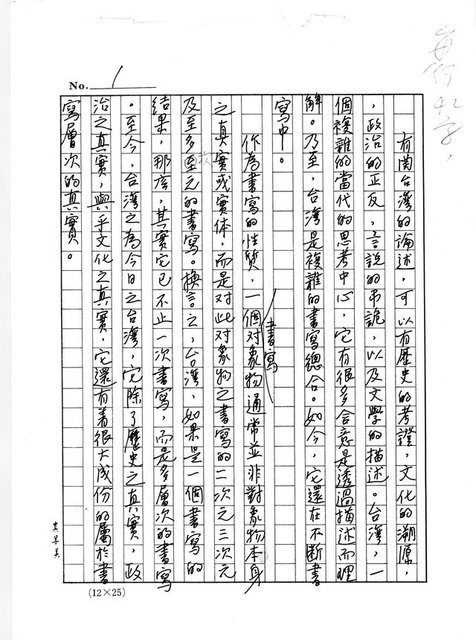 每行42字,
No. 1
有關台灣的論述,可以有歷史的考證,文化的溯源
,政治的正反,言說的弔詭,以及文學的描述。台灣,一
個複雜的當代的思考中心,它有很多含意是透過描述而理
解。乃至,台灣是複雜的書寫總合。如今,它還在不斷書
寫中。
作為書寫的性質,一個書寫对象物通常並非對象物本身
之真實或实体,而是对此对象物之書寫的二次元三次元
及至多至元的書寫。換言之,台灣,如果是一個書寫的
結果,那麼,其實它已不止一次書寫,而是多層次的書寫
。至今,台灣之為今日之台灣,它除了歷史之真實,政
治之真實,與乎文化之真實,它還有着很大成份的屬於書
寫層次的真實。
(12×25)